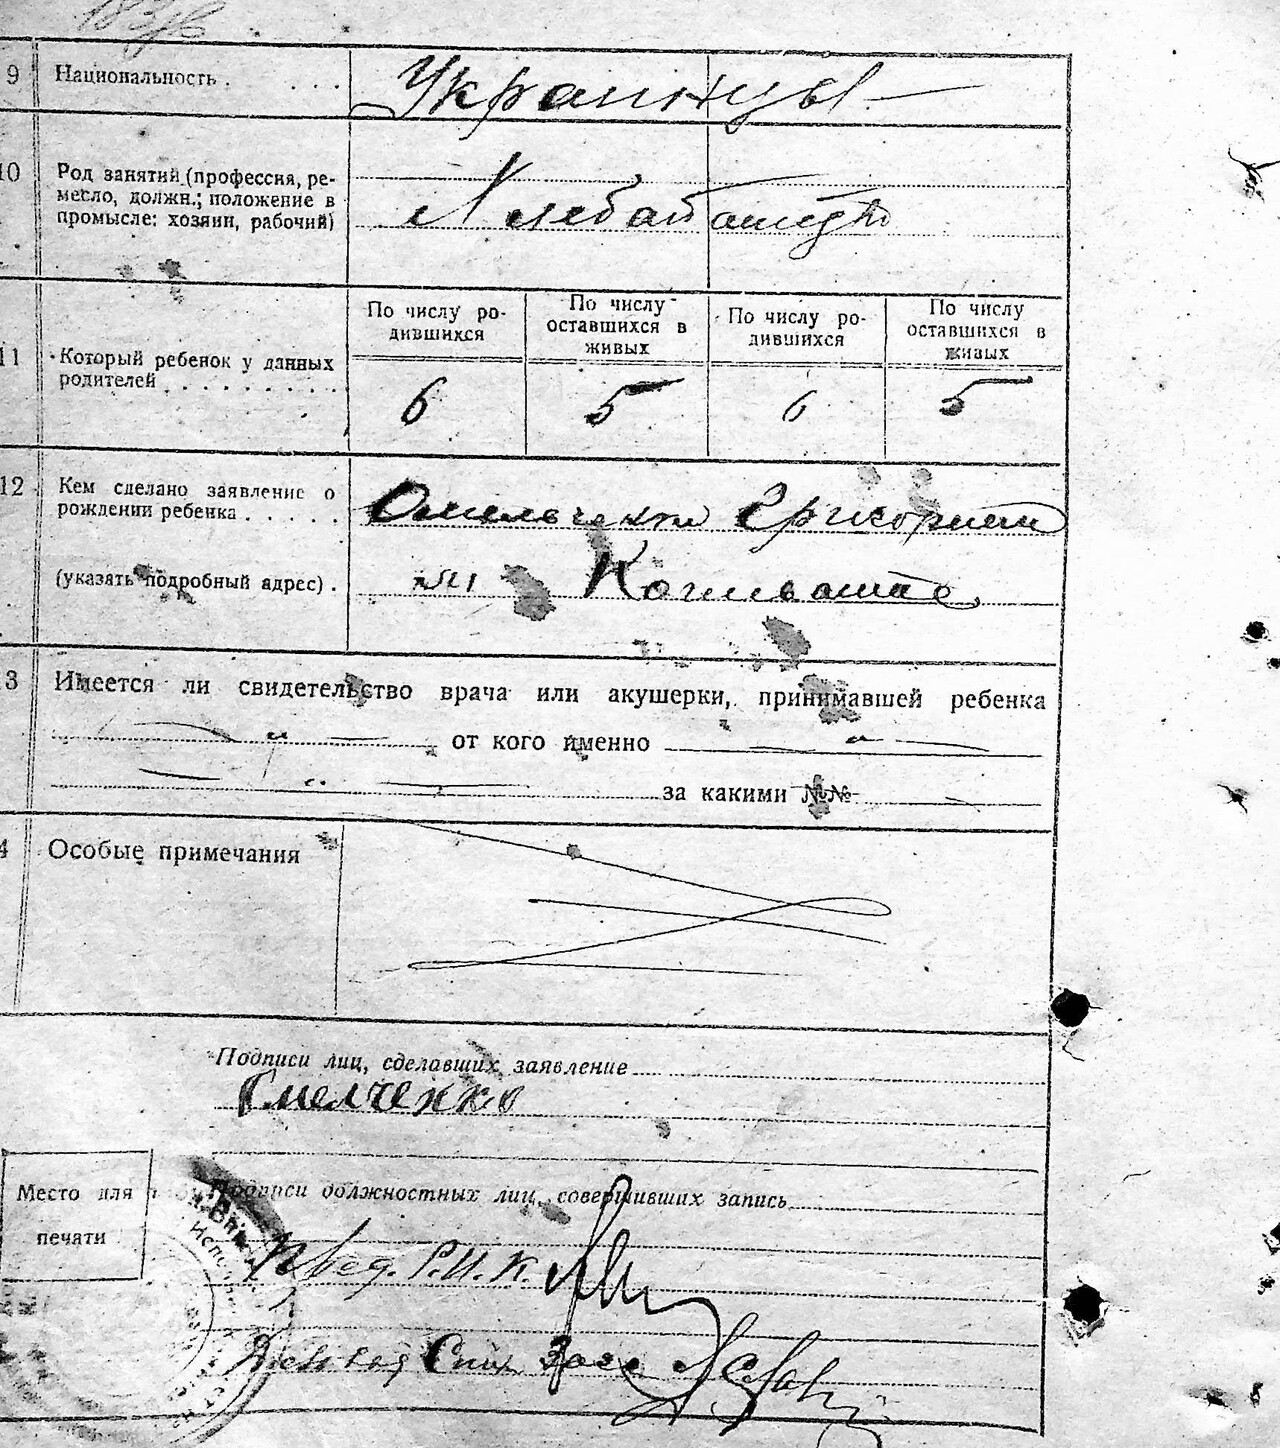 9 Национальность . . . . Украинцы
10 Род занятий (профессия, ре-
месло, должн.; положение в
промысле: хозяин, рабочий)
Хлебопашество
По числу ро-
дившихся
По числу
оставшихся в
живых
По числу ро-
дившихся
По числу
оставшихся в
живых
11 Который ребенок у данных
родителей . . . . . . . . .
6 5 6 5
12 Кем сделано заявление о
рождении ребенка . . . . .
Омельченко Григорием
(указать подробный адрес) .
3 Имеется ли свидетельство врача или акушерки, принимавшей ребенка
от кого именно
за какими №№
4 Особые примечания
Подписи лиц, сделавших заявление
Омелченко
Место для
печати
Подписи должностных лиц, совершивших запись
Пред. Р.И.К.